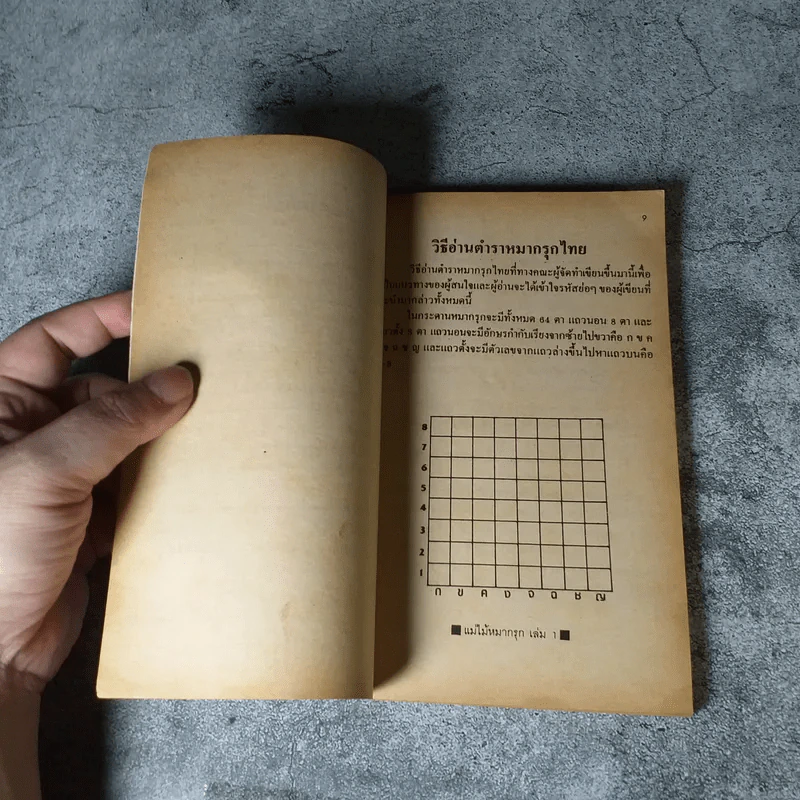 9
วิธีอ่านตำราหมากรุกไทย
วิธีอ่านตำราหมากรุกไทยที่ทางคณะผู้จัดทำเขียนขึ้นมานี้เพื่อ
แนวทางของผู้สนใจและผู้อ่านจะได้เข้าใจรหัสย่อๆ ของผู้เขียนที่
กล่าวทั้งหมดนี้
ในกระดานหมากรุกจะมีทั้งหมด 64 ตา แถวนอน 8 ตา และ
8 ตา แถวนอนจะมีอักษรกำกับเรียงจากซ้ายไปขวาคือ ก ข ค
ฉ ช ญ และแถวตั้งจะมีตัวเลขจากแถวล่างขึ้นไปหาแถวบนคือ
8
7
6
5
4
3
2
1
ก ข ค ง จ ฉ ช ญ
แม่ไม้หมากรุก เล่ม 1